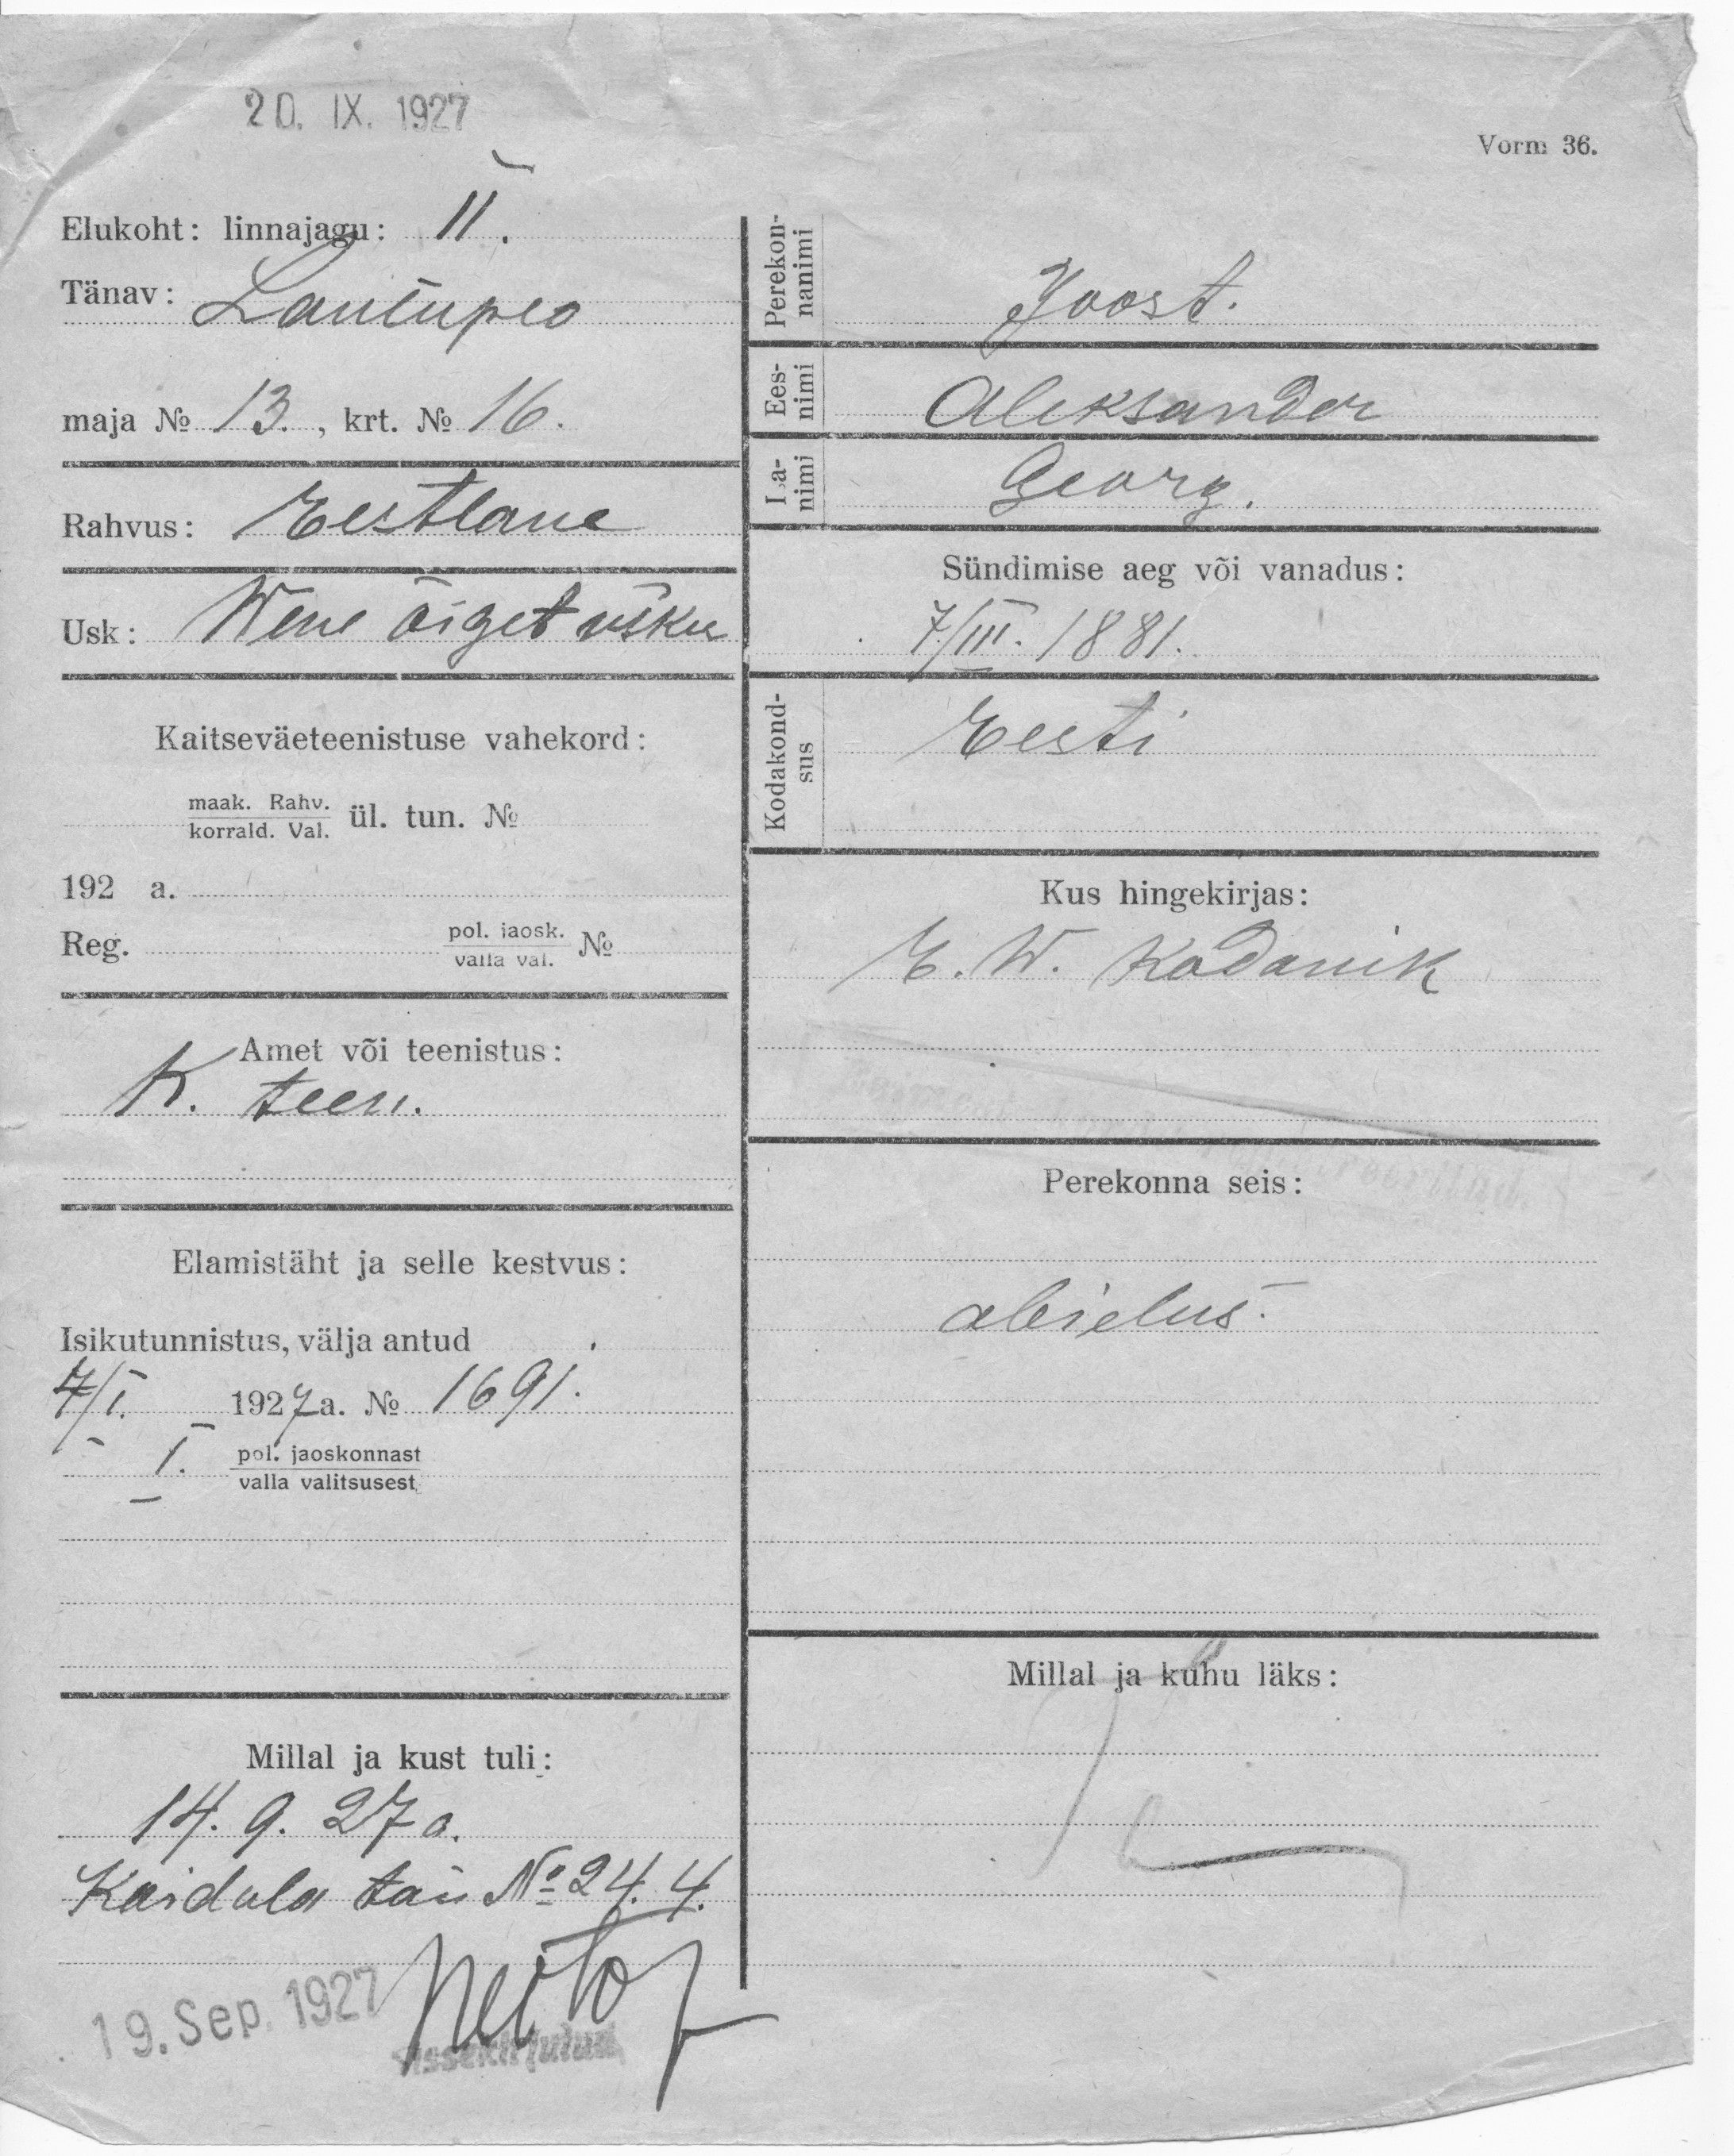 20. IX. 1927
Vorm 36.
Elukoht: linnajagu: II.
Tänav: Laulupeo
maja № 13., krt. № 16.
Rahvus: Eestlane
Usk: Wene õiget usku
Kaitseväeteenistuse vahekord:
maak. Rahv.
korrald. Val. ül. tun. №
192 a.
Reg. pol. jaosk.
valla val. №
Amet või teenistus:
K. teen.
Elamistäht ja selle kestvus:
Isikutunnistus, välja antud
7/I. 1927 a. № 1691.
I. pol. jaoskonnast
valla valitsusest
Millal ja kust tuli:
14. 9. 27 a.
Koidula tän № 24. 4.
19. Sep. 1927
Sissekirjutud
Perekon-
nanimi
Joost.
Ees-
nimi
Aleksander
Isa-
nimi
Georg.
Sündimise aeg või vanadus:
7/III. 1881.
Kodakond-
sus
Eesti
Kus hingekirjas:
E. W. Kodanik
Perekonna seis:
abielus.
Millal ja kuhu läks: